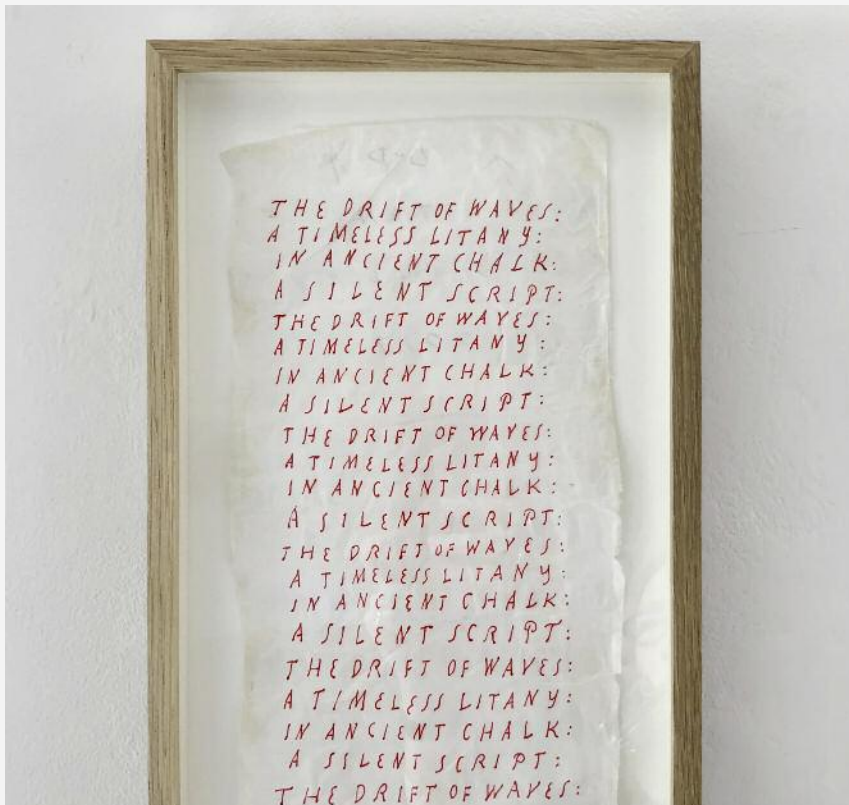 THE DRIFT OF WAVES:
A TIMELESS LITANY:
IN ANCIENT CHALK:
A SILENT SCRIPT:
THE DRIFT OF WAVES:
A TIMELESS LITANY:
IN ANCIENT CHALK:
A SILENT SCRIPT:
THE DRIFT OF WAVES:
A TIMELESS LITANY:
IN ANCIENT CHALK:
A SILENT SCRIPT:
THE DRIFT OF WAVES:
A TIMELESS LITANY:
IN ANCIENT CHALK:
A SILENT SCRIPT:
THE DRIFT OF WAVES:
A TIMELESS LITANY:
IN ANCIENT CHALK:
A SILENT SCRIPT:
THE DRIFT OF WAVES: